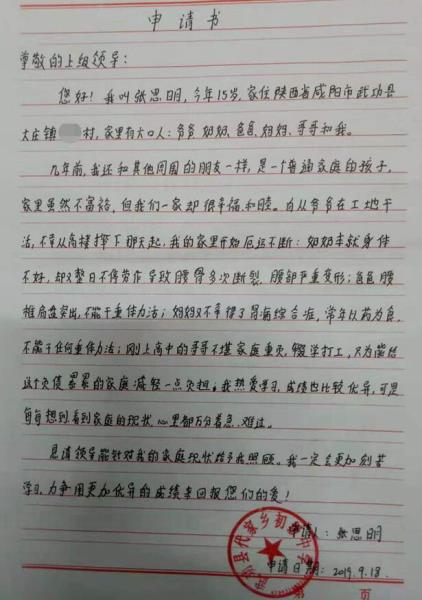 申请书
尊敬的上级领导：
您好！我叫张思明，今年15岁，家住陕西省咸阳市武功县
大庄镇 村，家里有六口人：爷爷、奶奶、爸爸、妈妈、哥哥和我。
几年前，我还和其他同围的朋友一样，是一个普通家庭的孩子，
家里虽然不富裕，但我们一家却很幸福和睦。自从爷爷在工地干
活，不幸从高楼摔下那天起，我的家里开始厄运不断：奶奶本就身体
不好，却又整日不停劳作导致腰骨多次断裂，腰部严重变形；爸爸腰
椎间盘突出，不能干重体力活；妈妈又不幸得了胃病综合症，常年以药为食，
不能干任何重体力活；刚上高中的哥哥不堪家庭重负，辍学打工，只为能给
这个负债累累的家庭减轻一点负担。我热爱学习，成绩也比较优异，可是
每每想到看到家庭的现状，心里都万分着急、难过。
恳请领导能针对我的家庭现状给予我照顾。我一定会更加刻苦
学习，力争用更加优异的成绩来回报您们的爱！
申请人：张思明
申请日期：2019.9.18.
县代家乡初级中学
页